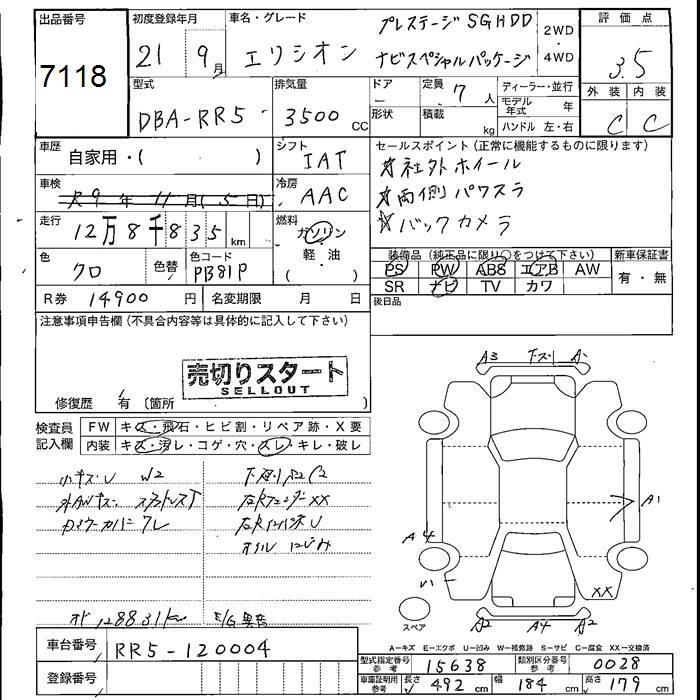 出品番号
7118
初度登録年月
21 9月
車名・グレード
エリシオン
プレステージSGHDD
ナビスペシャルパッケージ
2WD
・
4WD
評価点
3.5
外装 内装
C C
型式
DBA-RR5
排気量
3500 CC
ドア
形状
定員 7人
積載 kg
ディーラー・並行
モデル年式 年
ハンドル 左・右
車歴
自家用・( )
シフト
IAT
セールスポイント(正常に機能するものに限ります)
☆社外ホイール
☆両側パワスラ
☆バックカメラ
車検
R9年11月(5日)
冷房
AAC
走行
12万8千835km
燃料
ガソリン
軽・油
( )
色
クロ
色替
色コード
PB81P
装備品(純正品に限り○をつけて下さい)
PS PW ABS エアB AW
SR ナビ TV カワ
新車保証書
有・無
R券 14900円
名変期限 月 日
後日品
注意事項申告欄(不具合内容等は具体的に記入して下さい)
売切りスタート
SELLOUT
修復歴 有(箇所 )
検査員
記入欄
FW キズ・飛石・ヒビ割・リペア跡・X要
内装 キズ・汚レ・コゲ・穴・スレ・キレ・破レ
小キズU W2
外AWキズ
下廻りS2C2
右Rフェンダー XX
右RインパネU
オイルにじみ
オド128831km
E/G異音
A3 下ズリ A1
A1
A4
XX
A2 A4 A2
スペア
A-キズ E-エクボ U-凹み W-補修跡 S-サビ C-腐食 XX-交換済
車台番号
RR5-120004
登録番号
型式指定番号 参考
15638
類別区分番号 参考
0028
車庫証明用 参考
長さ 492cm
幅 184cm
高さ 179cm